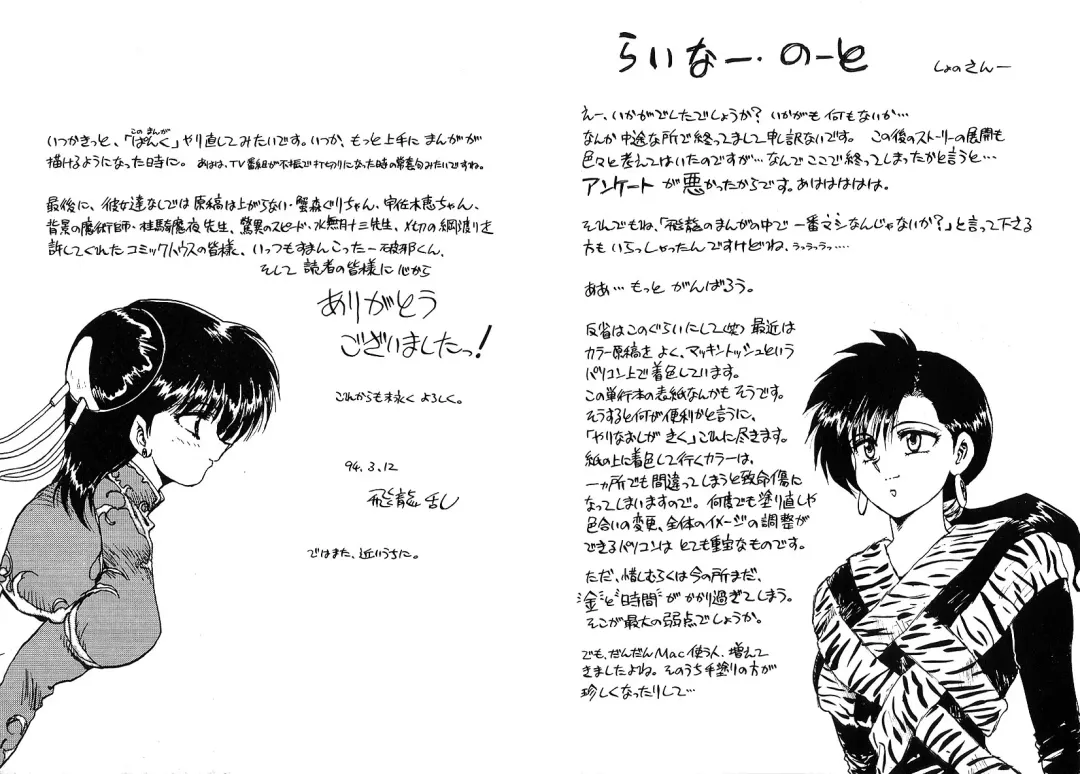 らいなー・のーと
しょのさんー
えー、いかがでしたでしょうか？ いかがも何もないか…
なんか中途な所で終ってまして申し訳ないです。 この後のストーリーの展開も
色々と考えてはいたのですが…なんでここで終ってしまったかと言うと…
アンケートが悪かったからです。あははははは。
それでもね、「飛龍のまんがの中で一番マシなんじゃないか？」と言って下さる
方もいらっしゃったんですけどね、うっうっうっ‥‥
ああ… もっと がんばろう。
反省はこのぐらいにして(笑) 最近は
カラー原稿を よく、マッキントッシュという
パソコン上で着色しています。
この単行本の表紙なんかもそうです。
そうすると何が便利かと言うに、
「やりなおしが きく」これに尽きます。
紙の上に着色して行くカラーは、
一ヵ所でも間違ってしまうと致命傷に
なってしまいますので。何度でも塗り直しや
色合いの変更、全体のイメージの調整が
できるパソコンは とても重宝なものです。
ただ、惜しむらくは今の所まだ、
金と時間がかかり過ぎてしまう。
そこが最大の弱点でしょうか。
でも、だんだんMac使う人、増えて
きましたよね。そのうち手塗りの方が
珍しくなったりして…
いつかきっと、「ぱんく」やり直してみたいです。いつか、もっと上手に まんがが
このまんが
描けるようになった時に。 あはは、TV番組が不振で打切りになった時の常套句みたいですね。
最後に、彼女達なしでは原稿は上がらない・蟹森ぐりちゃん、宇佐木恵ちゃん、
背景の魔術師・桂馬魔夜先生、驚異のスピード・水無月十三先生、〆切の綱渡りを
許してくれたコミックハウスの皆様、いつもすまんこったー破耶くん、
そして 読者の皆様に心から
ありがとう
ございましたっ！
これからも末永く よろしく。
94.3.12
飛龍乱
ではまた、近いうちに。